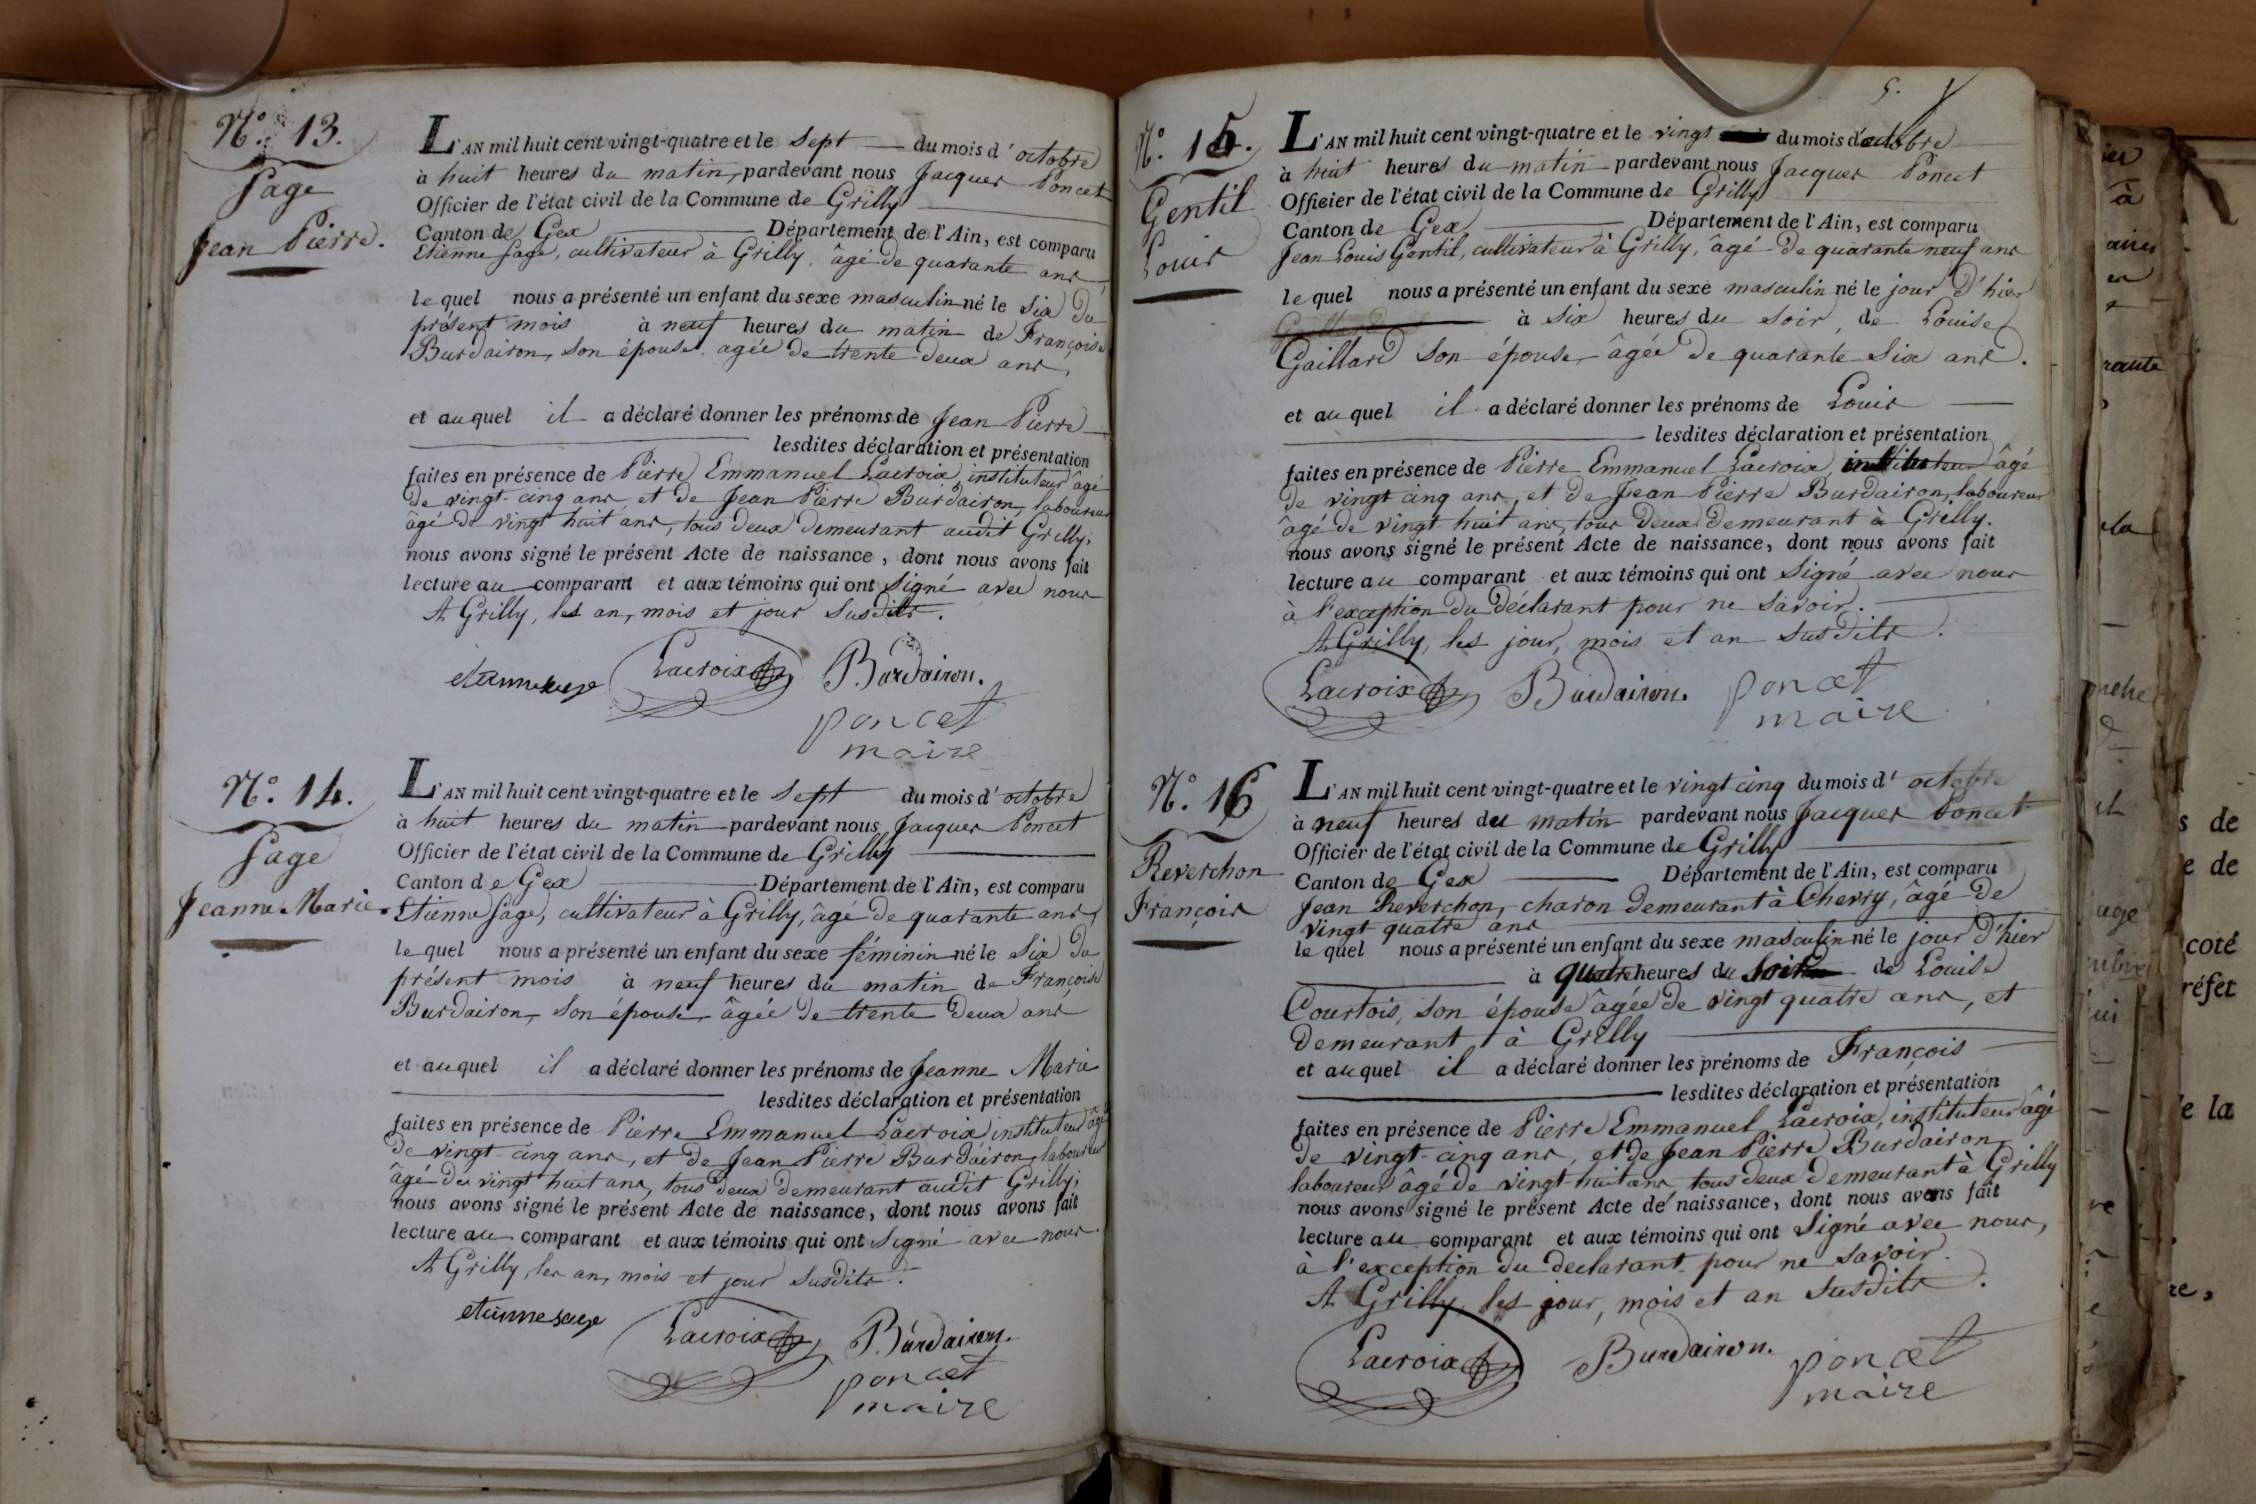 N.º 13.
Sage
Jean Pierre.
L'AN mil huit cent vingt-quatre et le sept du mois d'octobre
à huit heures du matin, pardevant nous Jacques Poncet
Officier de l'état civil de la Commune de Grilly
Canton de Gex Département de l'Ain, est comparu
Etienne Sage, cultivateur à Grilly, âgé de quarante ans
le quel nous a présenté un enfant du sexe masculin né le six du
présent mois à neuf heures du matin de Françoise
Burdairon, son épouse agée de trente deux ans,
et au quel il a déclaré donner les prénoms de Jean Pierre
lesdites déclaration et présentation
faites en présence de Pierre Emmanuel Lacroix, instituteur âgé
de vingt-cinq ans et de Jean Pierre Burdairon, laboureur
âgé de vingt huit ans, tous deux demeurant audit Grilly;
nous avons signé le présent Acte de naissance, dont nous avons fait
lecture au comparant et aux témoins qui ont signé avec nous
A Grilly, les an, mois et jour susdits.
etienne sage Lacroix Burdairon.
poncet
maire
N.º 14.
Sage
Jeanne Marie.
L'AN mil huit cent vingt-quatre et le sept du mois d'octobre
à huit heures du matin pardevant nous Jacques Poncet
Officier de l'état civil de la Commune de Grilly
Canton de Gex Département de l'Ain, est comparu
Etienne Sage, cultivateur à Grilly, âgé de quarante ans,
le quel nous a présenté un enfant du sexe féminin né le six du
présent mois à neuf heures du matin de Françoise
Burdairon, son épouse, âgée de trente deux ans
et au quel il a déclaré donner les prénoms de Jeanne Marie
lesdites déclaration et présentation
faites en présence de Pierre Emmanuel Lacroix instituteur âgé
de vingt-cinq ans, et de Jean Pierre Burdairon, laboureur
âgé de vingt huit ans, tous deux demeurant audit Grilly;
nous avons signé le présent Acte de naissance, dont nous avons fait
lecture au comparant et aux témoins qui ont signé avec nous
A Grilly, les an, mois et jour susdits.
etienne sage Lacroix Burdairon.
poncet
maire
5.
N.º 15.
Gentil
Louis
L'AN mil huit cent vingt-quatre et le vingt du mois d'octobre
à huit heures du matin pardevant nous Jacques Poncet
Officier de l'état civil de la Commune de Grilly
Canton de Gex Département de l'Ain, est comparu
Jean Louis Gentil, cultivateur à Grilly, âgé de quarante neuf ans
le quel nous a présenté un enfant du sexe masculin né le jour d'hier
à six heures du soir, de Louise
Gaillard son épouse, âgée de quarante six ans.
et au quel il a déclaré donner les prénoms de Louis
lesdites déclaration et présentation
faites en présence de Pierre Emmanuel Lacroix, instituteur âgé
de vingt cinq ans, et de Jean Pierre Burdairon, laboureur
âgé de vingt huit ans, tous deux demeurant à Grilly.
nous avons signé le présent Acte de naissance, dont nous avons fait
lecture au comparant et aux témoins qui ont signé avec nous
à l'exception du déclarant pour ne savoir.
A Grilly, les jour, mois et an susdits.
Lacroix Burdairon. poncet
maire
N.º 16
Reverchon
François
L'AN mil huit cent vingt-quatre et le vingt cinq du mois d'octobre
à neuf heures du matin pardevant nous Jacques Poncet
Officier de l'état civil de la Commune de Grilly
Canton de Gex Département de l'Ain, est comparu
Jean Reverchon, charon demeurant à Chevry, âgé de
vingt quatre ans
le quel nous a présenté un enfant du sexe masculin né le jour d'hier
à quatre heures du soir de Louise
Courtois, son épouse âgée de vingt quatre ans, et
demeurant à Grilly
et au quel il a déclaré donner les prénoms de François
lesdites déclaration et présentation
faites en présence de Pierre Emmanuel Lacroix, instituteur âgé
de vingt-cinq ans, et de Jean Pierre Burdairon,
laboureur âgé de vingt huit ans tous deux demeurant à Grilly
nous avons signé le présent Acte de naissance, dont nous avons fait
lecture au comparant et aux témoins qui ont signé avec nous,
à l'exception du declarant pour ne savoir.
A Grilly, les jour, mois et an susdits.
Lacroix Burdairon. poncet
maire